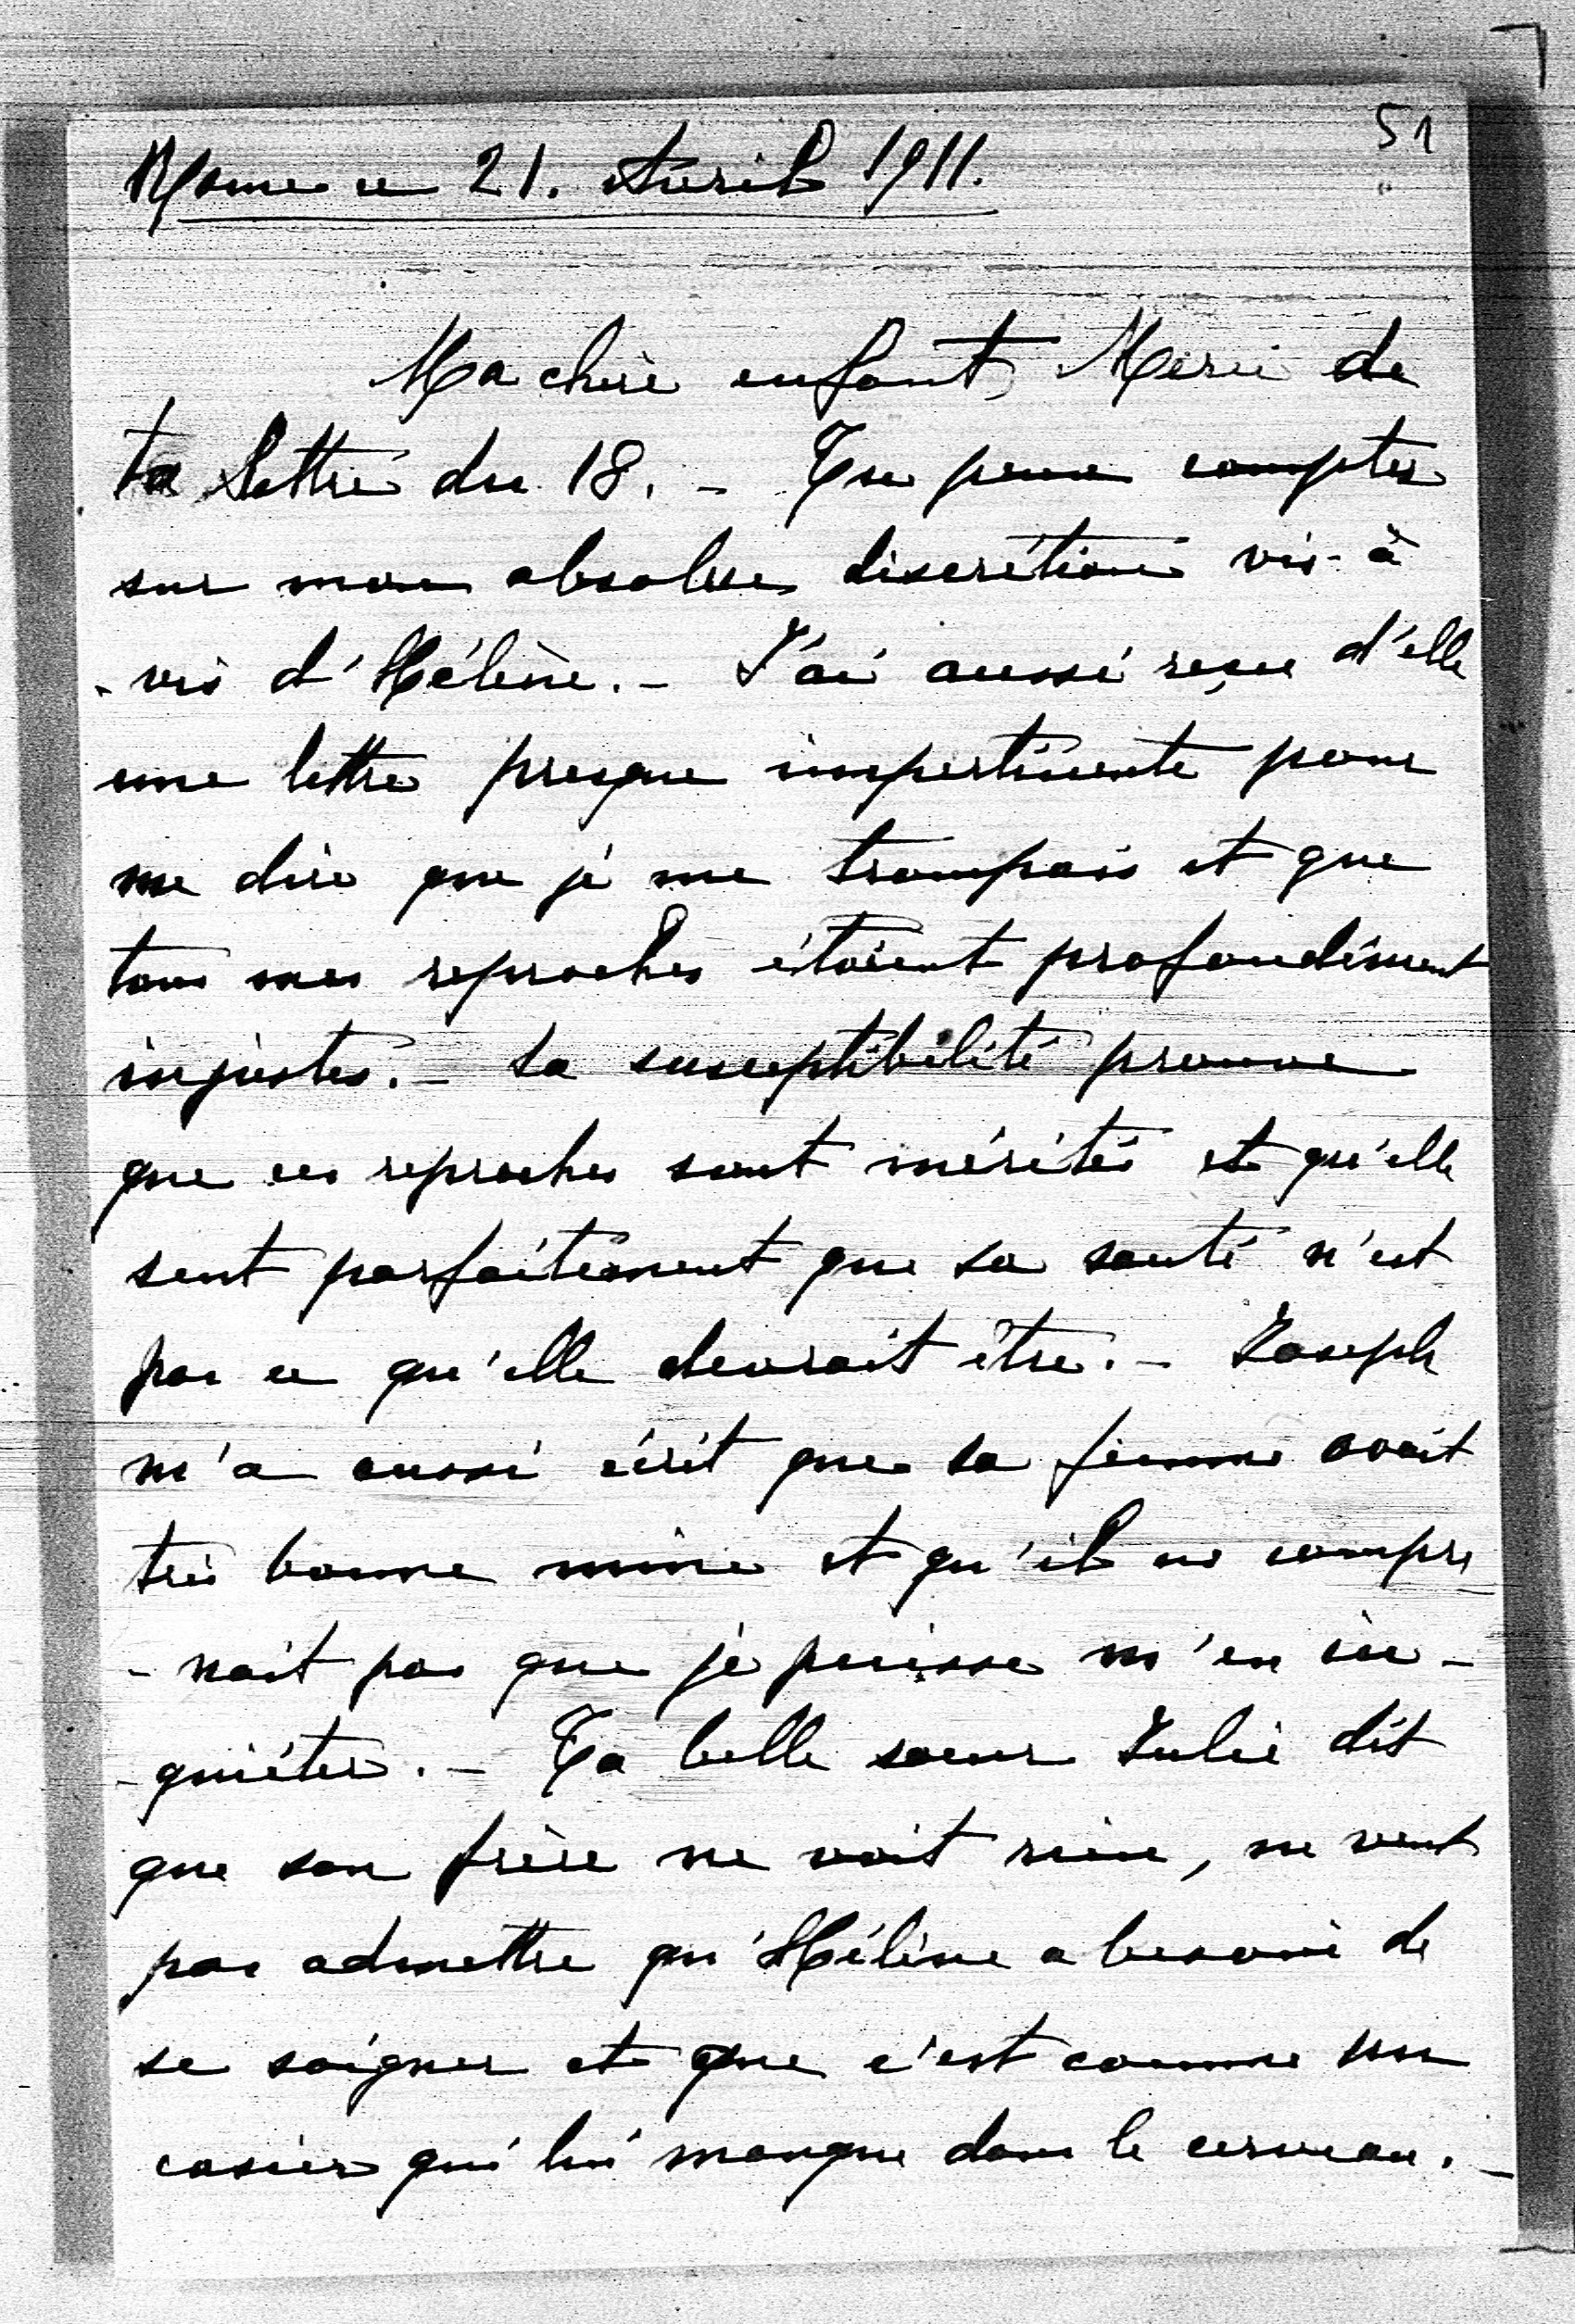 51
Rome ce 21. Avril 1911.
Ma chère enfant, Merci de
ta lettre du 18. - Tu peux compter
sur mon absolue discrétion vis-à
-vis d'Hélène. - J'ai aussi reçu d'elle
une lettre presque impertinente pour
me dire que je me trompais et que
tous mes reproches étaient profondément
injustes. - Sa susceptibilité prouve
que ces reproches sont mérités et qu'elle
sent parfaitement que sa santé n'est
pas ce qu'elle devrait être. - Joseph
m'a aussi écrit que sa femme avait
très bonne mine et qu'il ne compre
-nait pas que je puisse m'en in-
-quiéter. - Ta belle soeur Julie dit
que son frère ne voit rien, ne veut
pas admettre qu'Hélène a besoin de
se soigner et que c'est comme un
casier qui lui manque dans le cerveau. -